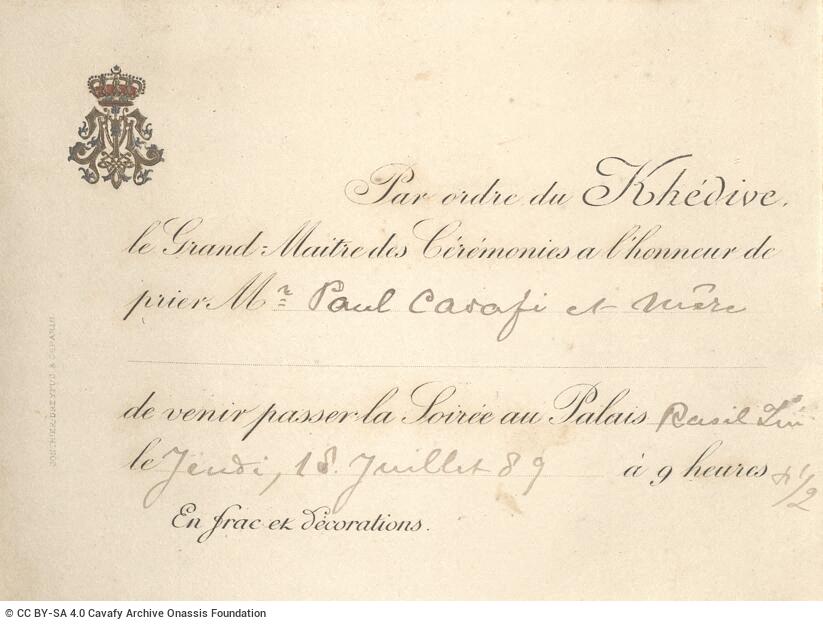 Par ordre du Khédive,
le Grand-Maître des Cérémonies a l'honneur de
prier Mr Paul Cavafi et Mère
de venir passer la Soirée au Palais
le Jeudi, 18 Juillet 89 à 9 heures 1/2
En frac et décorations.
© CC BY-SA 4.0 Cavafy Archive Onassis Foundation